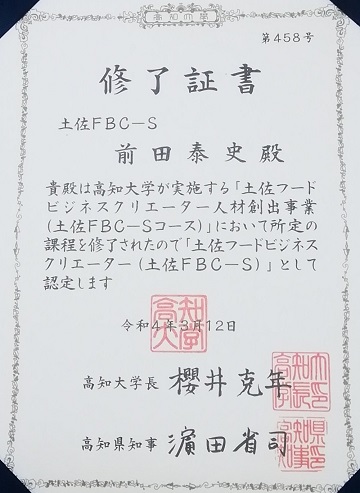 高知大学
第458号
修了証書
土佐FBC－S
前田泰史殿
貴殿は高知大学が実施する「土佐フード
ビジネスクリエーター人材創出事業
(土佐FBC－Sコース)」において所定の
課程を修了されたので「土佐フードビジネス
クリエーター(土佐FBC－S)」として
認定します
令和4年3月12日
高知大学
高知大学長 櫻井克年
高知大学長印
高知県知事 濵田省司
高知県知事印